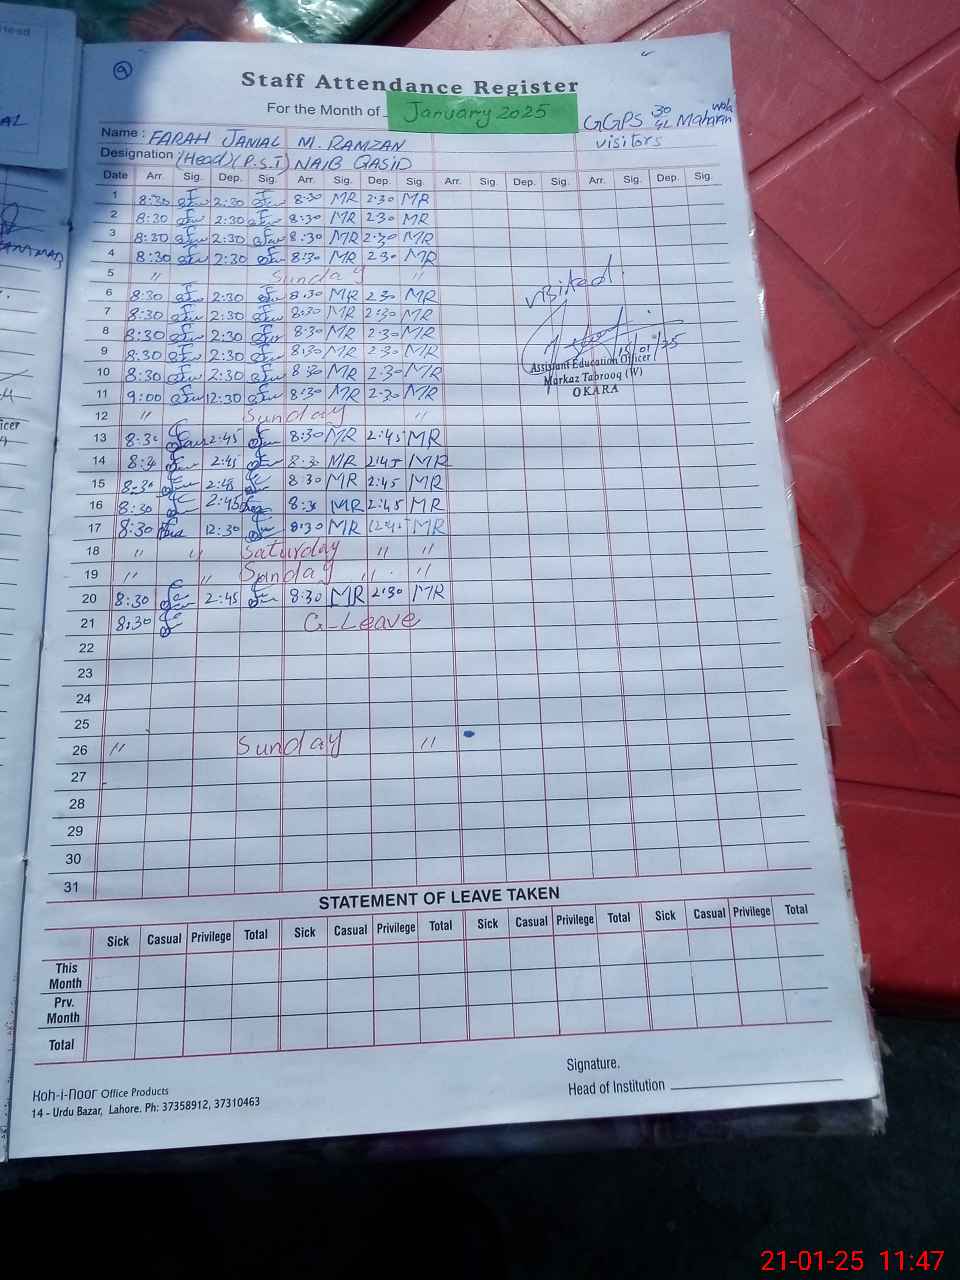 9
Staff Attendance Register
For the Month of January 2025
GGPS 30/4L Maharan wala
Name : FARAH JAMAL M. RAMZAN
visitors
Designation (Head) (P.S.T) NAIB QASID
Date Arr. Sig. Dep. Sig. Arr. Sig. Dep. Sig. Arr. Sig. Dep. Sig. Arr. Sig. Dep. Sig.
1 8:30 2:30 8:30 MR 2:30 MR
2 8:30 2:30 8:30 MR 2:30 MR
3 8:30 2:30 8:30 MR 2:30 MR
4 8:30 2:30 8:30 MR 2:30 MR
5 " Sunday "
6 8:30 2:30 8:30 MR 2:30 MR
visited.
7 8:30 2:30 8:30 MR 2:30 MR
8 8:30 2:30 8:30 MR 2:30 MR
9 8:30 2:30 8:30 MR 2:30 MR
Assistant Education Officer
10 8:30 2:30 8:30 MR 2:30 MR
Markaz Tabrooq (W)
11 9:00 12:30 8:30 MR 2:30 MR
OKARA
12 " Sunday "
13 8:30 2:45 8:30 MR 2:45 MR
14 8:30 2:45 8:30 MR 2:45 MR
15 8:30 2:45 8:30 MR 2:45 MR
16 8:30 2:45 8:30 MR 2:45 MR
17 8:30 12:30 8:30 MR 12:45 MR
18 " " Saturday " "
19 " " Sunday " "
20 8:30 2:45 8:30 MR 2:30 MR
21 8:30 C-Leave
22
23
24
25
26 " Sunday "
27
28
29
30
31
STATEMENT OF LEAVE TAKEN
Sick Casual Privilege Total Sick Casual Privilege Total Sick Casual Privilege Total Sick Casual Privilege Total
This Month
Prv. Month
Total
Signature.
Head of Institution
Koh-i-noor Office Products
14 - Urdu Bazar, Lahore. Ph: 37358912, 37310463
21-01-25 11:47